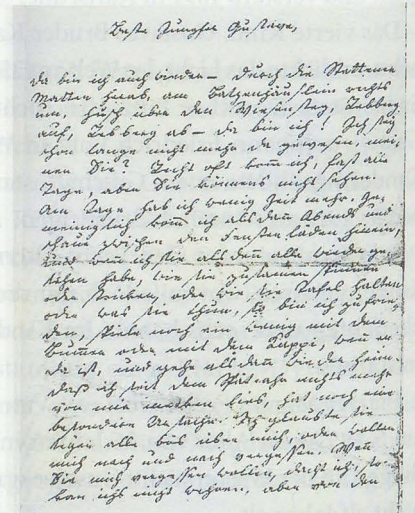 Beste Jungfer Gustave,
da bin ich auch wieder – durch die Stettemer
Matten hinab, am Batzenhäuslein rechts
um, husch über den Wiesensteg, Rebberg
auf, Rebberg ab – da bin ich! Ich sey
schon lange nicht mehr da gewesen, mei-
nen Sie? Recht oft komm ich, fast alle
Tage, aber Sie können's nicht sehen.
Am Tage hab ich wenig Zeit mehr. Ge-
meiniglich komm ich alsdann Abends und
schaue zwischen den Fensterladen hinein,
und wenn ich sie alsdann alle wieder ge-
sehen habe, wie sie zusammen spinnen
oder stricken, oder wie sie Tafel halten
oder was sie thun, so bin ich zufrie-
den, spiele noch ein wenig mit dem
oder mit dem Zuppi, wenn er
da ist, und gehe alsdann wieder heim.
daß ich seit dem Spätjahr nichts mehr
von mir merken lies, hat noch eine
besondere Ursache. Ich glaubte sie
seyen alle bös über mich, oder wollen
mich nach und nach vergessen. Wenn
Sie mich vergessen wollen, dacht ich, so
kan ichs nicht wehren, aber von den